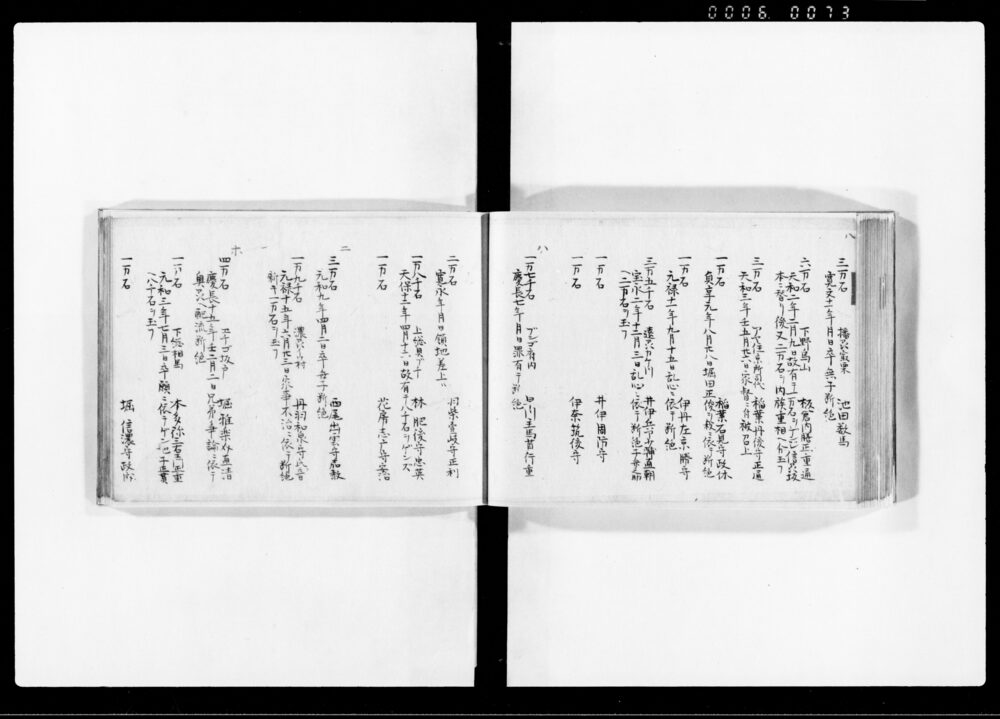 0006 0073
八
三万石 播六宍粟 池田数馬
寛文十一年月日卒無子断絶
六万石 下野烏山 板倉内膳正重通
天和二年二月九日故有テ一万石ヲゲンジ信六坂
本ニ替リ後又二万石ヲ内膳重相ヘ分玉フ
三万石 稲葉丹後守正通
天和三年壬五月廿六日家督ニ自被召上
一万石 稲葉石見守政休
貞享元年八月廿八日堀田正俊ヲ殺ニ依テ断絶
一万石 伊丹左京勝守
元禄十一年九月十五日乱心ニ依テ断絶
三万五千石 遠六カケ川 井伊兵部少輔直朝
宝永二年十二月三日乱心ニ依テ断絶子兵之助
ヘ二万石ヲ玉フ
一万石 井伊周防守
一万石 伊奈筑後守
ハ
一万七千石 ブンゴ府内 早川主馬首行重
慶長七年月日罪有テ断絶
二万石 羽柴壱岐守正利
寛永年月日領地差上ル
一万八千石 上総貝フチ 林肥後守忠英
天保十二年四月十六日故有テ八千石ヲゲンズ
一万石 花房志戸守安治
ニ
三万石 西尾出雲守
元和九年四月二日卒無子断絶
一万九千石 濃六小村 丹羽和泉守氏音
元禄十五年六月廿三日家事不治ニ依テ断絶
新キ一万石ヲ玉フ
ホ
四万石 ヱチゴ坂戸 堀雅楽介直清
慶長十五年壬二月二日兄弟争論ニ依テ
奥六ヘ配流断絶
一万石 下総相馬 本多弥二右ヱ門正重
元和三年七月三日卒願ニ依テゲンジ子正貫
ヘ八千石ヲ玉フ
一万石 堀信濃守政成